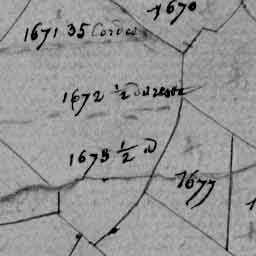 1670
1671 35 Cordes
1672 1/2
1673 1/2 d
1677